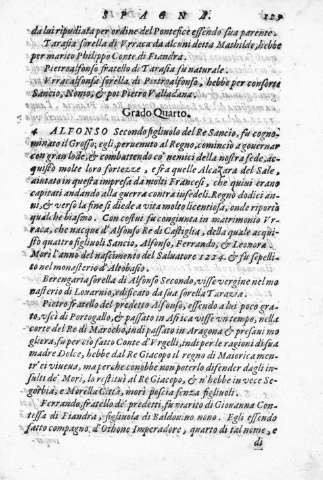 SPAGNA. 129
da lui ripudiata per ordine del Pontefice essendo sua parente.
Tarasia sorella di Vrraca da alcuni detta Mathilde, hebbe
per marito Philippo Conte di Fiandra.
Pietroalfonso fratello di Tarasia fu naturale.
Vrracalfonsa sorella di Pietroalfonso, hebbe per consorte
Sancio, Nonio, & poi Pietro Valladana.
Grado Quarto.
4 ALFONSO Secondo figliuolo del Re Sancio, fu cogno-
minato il Grosso; egli peruenuto al Regno, cominciò a gouernar
con gran lode, & combattendo co' nemici della nostra fede, ac-
quistò molte loro fortezze, e frà quelle Alcazara del Sale,
aiutato in questa impresa da molti Francesi, che quiui erano
capitati andando alla guerra contra infedeli. Regnò dodici an-
ni, & verso la fine si diede a vita molto licentiosa, onde riportò
qualche biasimo. Con costui fu congiunta in matrimonio Vr-
raca, che nacque d'Alfonso Re di Castiglia, della quale acqui-
stò quattro figliuoli Sancio, Alfonso, Ferrando, & Leonora
Morì l'anno del nascimento del Saluatore 1224. & fu sepelli-
to nel monasterio d'Alcobasio.
Berengaria sorella di Alfonso Secondo, visse vergine nel mo-
nasterio di Louaruio, edificato da sua sorella Tarazia.
Pietro fratello del predetto Alfonso, essendo a lui poco gra-
to, vscì di Portogallo, & passato in Africa visse vn tempo, nella
corte del Re di Marocho, indi passato in Aragona & presa iui mo
gliera, fu per ciò fatto Conte d'Vrgelli, indi per le ragioni di sua
madre Dolce, hebbe dal Re Giacopo il regno di Maiorica men-
tr'ei viuena, ma perche conobbe non poterlo difender dagli in-
sulti de' Mori, lo restituì al Re Giacopo, & n'hebbe in vece Se-
gorbia, e Morella Città, morì poscia senza figliuoli.
Ferrando, fratello de' predetti, fu marito di Giouanna Con-
tessa di Fiandra, figliuola di Baldouino nono. Egli essendo
fatto compagno, d'Othone Imperadore, quarto di tal nome, e
di